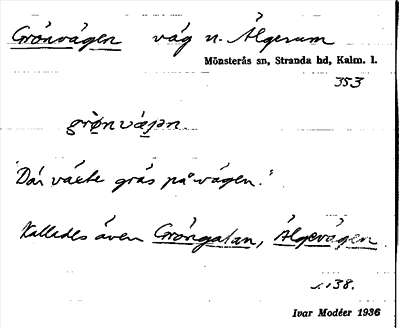 Grönvägen väg n. Älgerum
Mönsterås sn, Stranda hd, Kalm. l.
353
"Där växte gräs på vägen."
Kallades även Gröngatan, Älgevägen
s. 138.
Ivar Modéer 1936